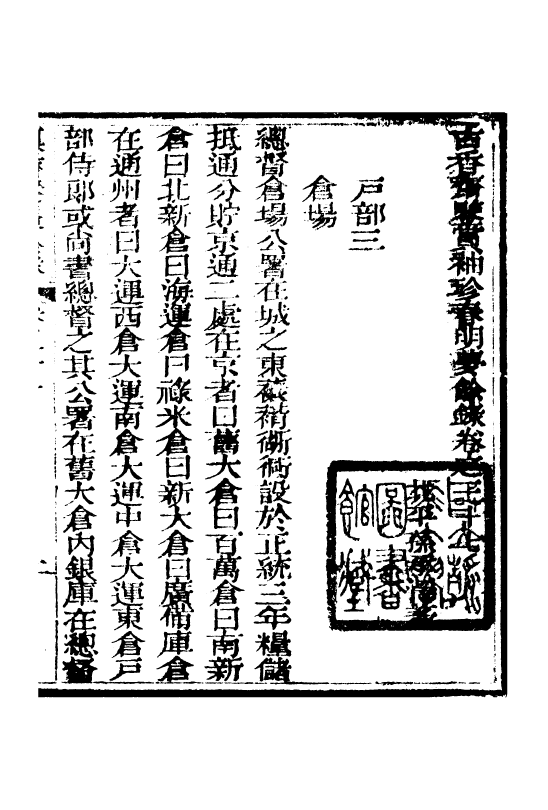 古香齋鑒賞袖珍春明夢餘錄卷之三十九
戶部三
倉場
總督倉場公署在城之東裱褙衚衕設於正統三年糧儲
抵通分貯京通二處在京者曰舊大倉曰百萬倉曰南新
倉曰北新倉曰海運倉曰祿米倉曰新大倉曰廣備庫倉
在通州者曰大運西倉大運南倉大運中倉大運東倉戶
部侍郎或尚書總督之其公署在舊大倉內銀庫在總督